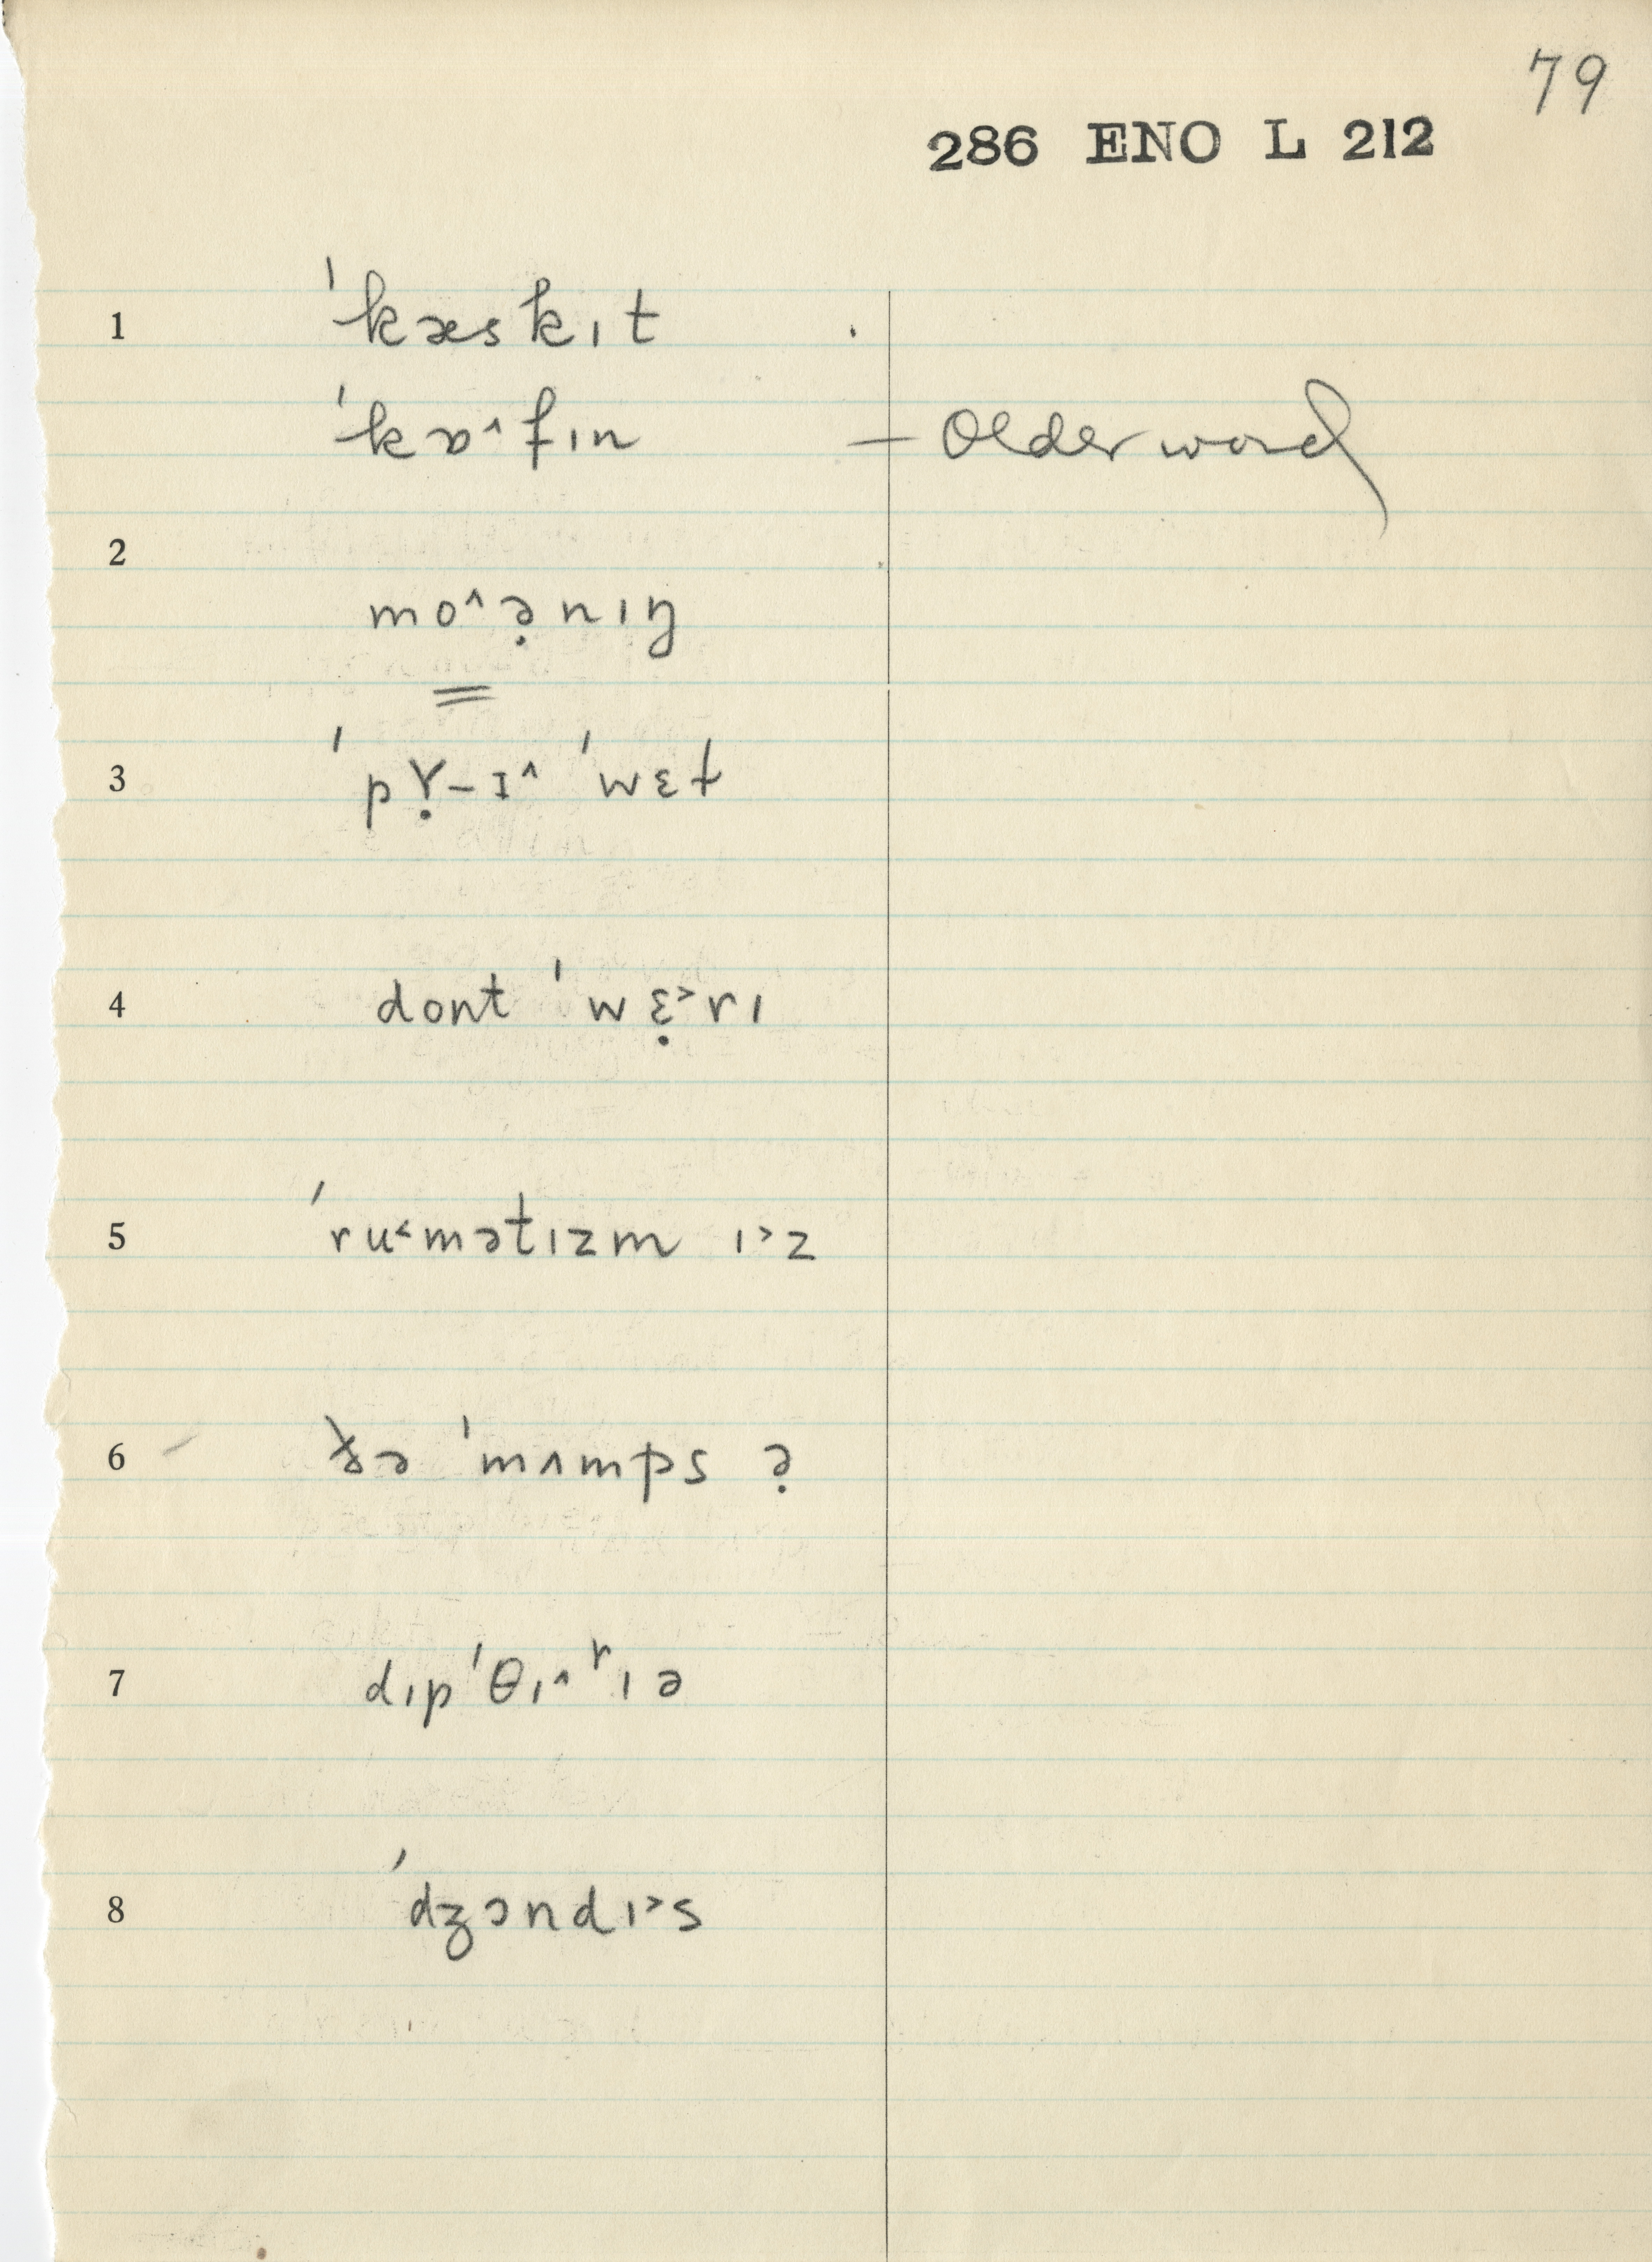 79
286 ENO L 212
1 ˈkæskɪt
ˈkɒ^fɪn — Older word
2
mo^ə̣nɪŋ
=
3 ˈpɤ̣-ɪ^ ˈwɛł
4 dont ˈwɛ̣˃rɪ
5 ˈru˂mətɪzm ɪ˃z
6 ðə ˈmʌmps ə̣
7 dɪpˈθɪ^ʳɪə
8 ˈdʒɔndɪ˃s